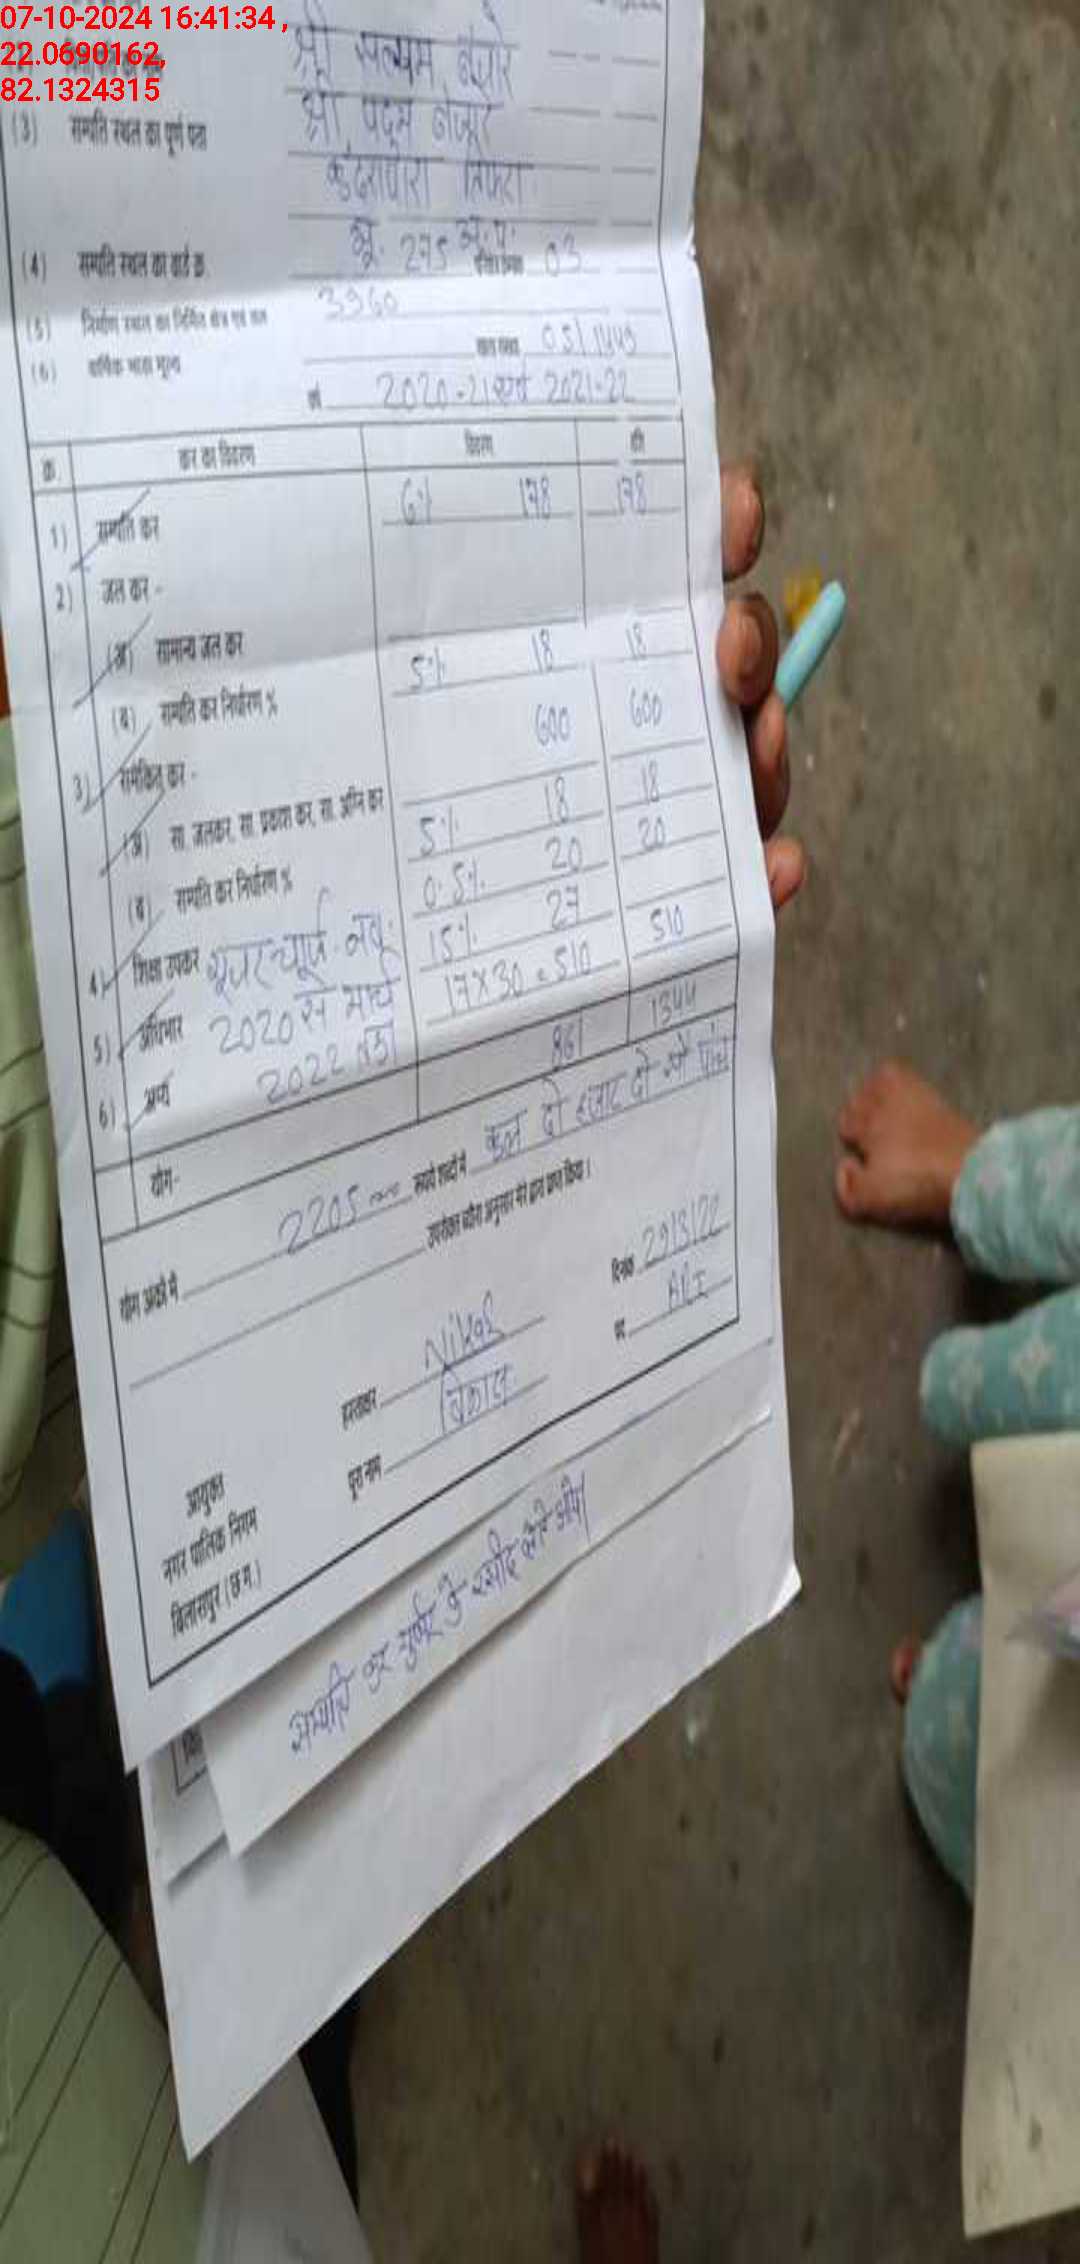 07-10-2024 16:41:34 ,
22.0690162,
82.1324315
श्री सत्यम
(3) सम्पति स्थल का पूर्ण पता श्री पदुम
तिफरा
भू. 275 भू.प.
(4) सम्पति स्थल का वार्ड क्र. 03
(5) निर्माण स्थल का निर्मित क्षेत्र एवं तल 3960
(6) वार्षिक भाड़ा मूल्य 05/1443
वर्ष 2020-21 एवं 2021-22
क्र. कर का विवरण विवरण राशि
1) सम्पति कर 6% 178 178
2) जल कर -
(अ) सामान्य जल कर
(ब) सम्पति कर निर्धारण % 5% 18 18
3) समेकित कर - 600 600
(अ) सा. जलकर, सा. प्रकाश कर, सा. अग्नि कर
(ब) सम्पति कर निर्धारण % 5% 18 18
4) शिक्षा उपकर 0.5% 20 20
5) अधिभार यूजर चार्ज नव. 15% 27
6) अन्य 2020 से मार्च 17x30=510 510
2022 तक
योग- 861 1344
योग अंकों में 2205 रूपये शब्दों में कुल दो हजार दो सौ पांच
उपरोक्त ब्यौरा अनुसार मेरे द्वारा प्राप्त किया।
दिनांक 29/3/22
हस्ताक्षर Nikas पद ARI
पूरा नाम विकास
आयुक्त
नगर पालिक निगम
बिलासपुर (छ.ग.)
सम्पत्ति कर